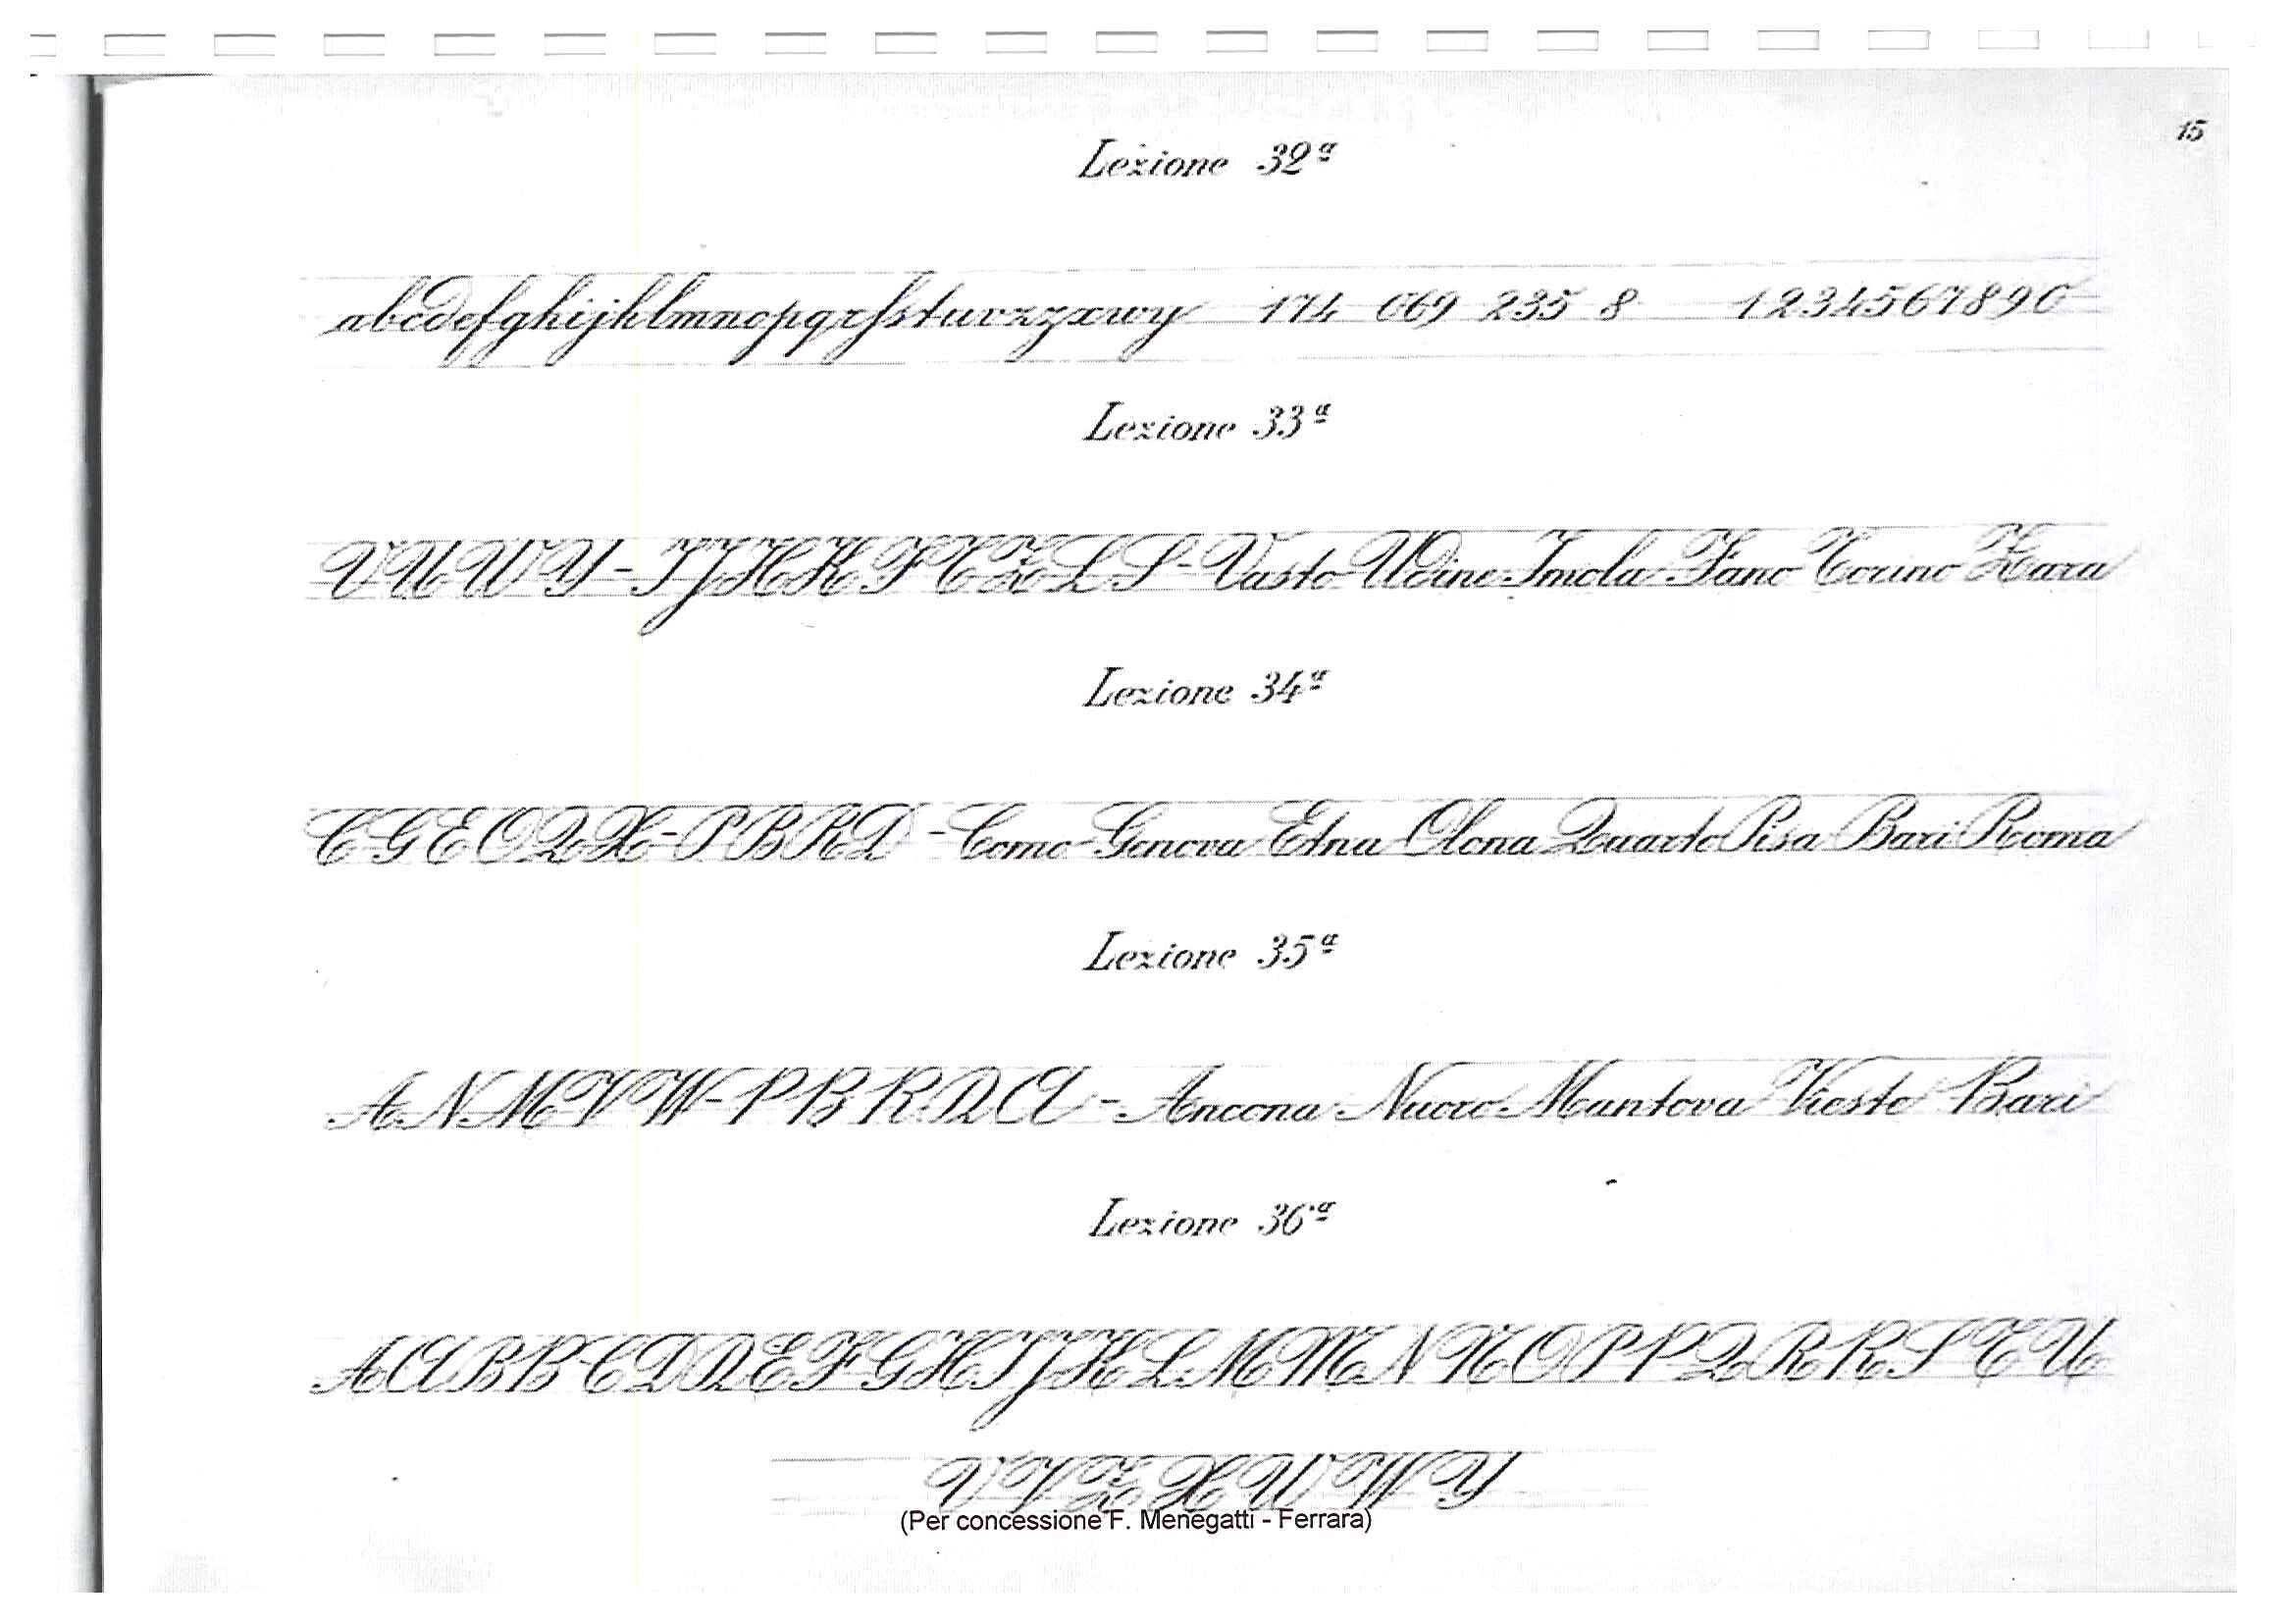 15
Lezione 32ª
abcdefghijklmnopqrsstuvzzxwy 174 069 235 8 1234567890
Lezione 33ª
V U W Y - I J H K F T Z L S - Vasto Udine Imola Fano Torino Zara
Lezione 34ª
C G E O Q X - P B R D - Como Genova Etna Olona Quarto Pisa Bari Roma
Lezione 35ª
A N M V W - P B R D A - Ancona Nuoro Mantova Vieste Bari
Lezione 36ª
A A B B C D D E F G H I J K L M M N N O P P Q R R S T U
V V Z X W W Y
(Per concessione F. Menegatti - Ferrara)